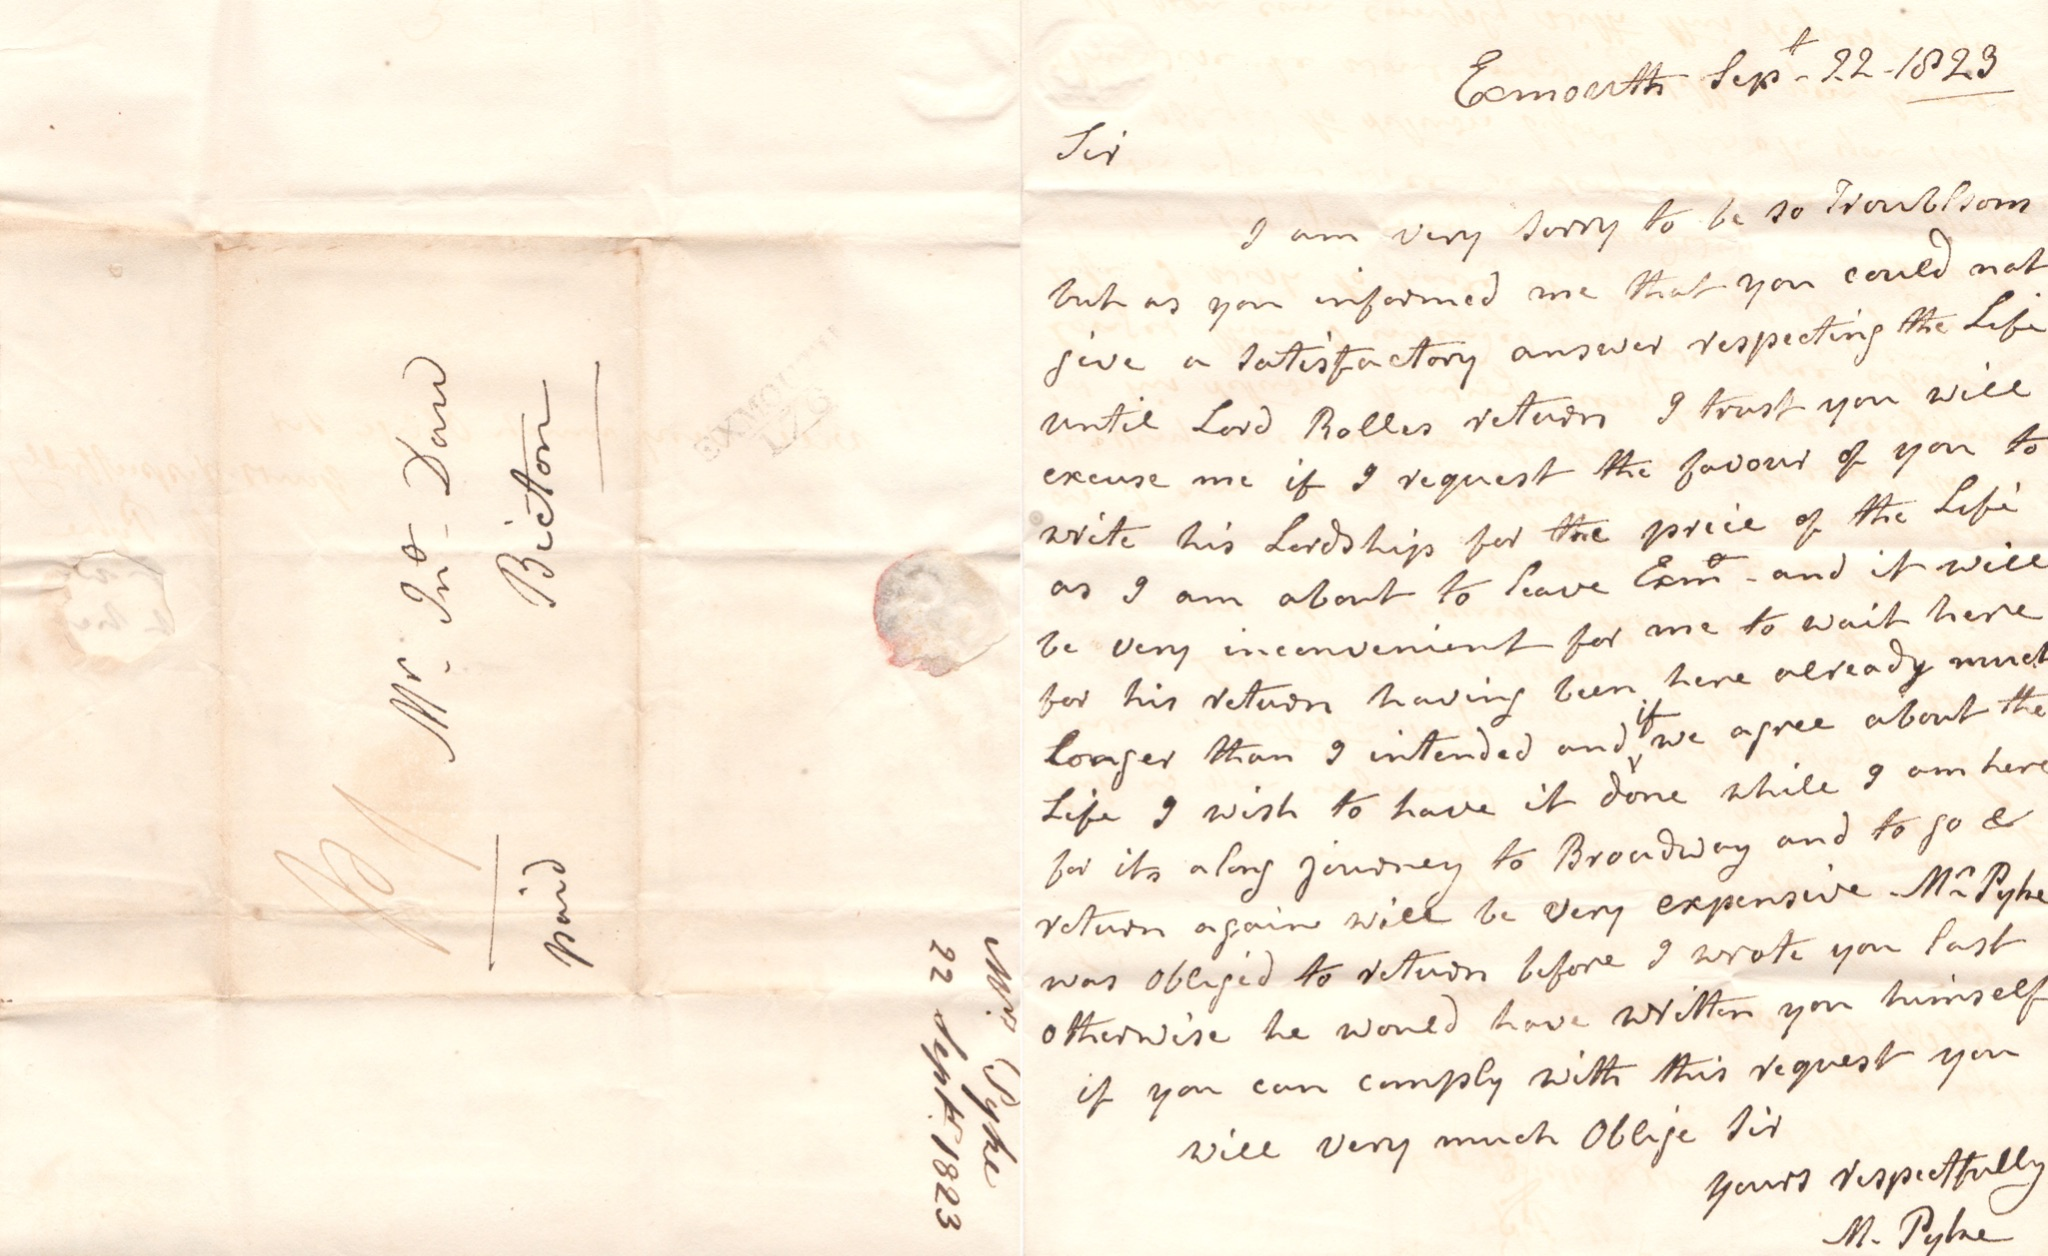 Exmouth Sept. 22 - 1823
Sir
I am very sorry to be so Troublsom
but as you informed me that you could not
give a satisfactory answer respecting the Life
until Lord Rolles return I trust you will
excuse me if I request the favour of you to
write his Lordship for the price of the Life
as I am about to leave Exmo - and it will
be very inconvenient for me to wait here
for his return having been here already much
Longer than I intended and if we agree about the
Life I wish to have it done while I am here
for its along journey to Broadway and to go &
return again will be very expensive - Mr Pyke
was obliged to return before I wrote you last
otherwise he would have written you himself
if you can comply with this request you
will very much Oblige Sir
yours respectfully
M. Pyke
Mr. Jno. Daw
Bicton
paid
EXMOUTH
176
Mrs Pyke
22 Sept. 1823